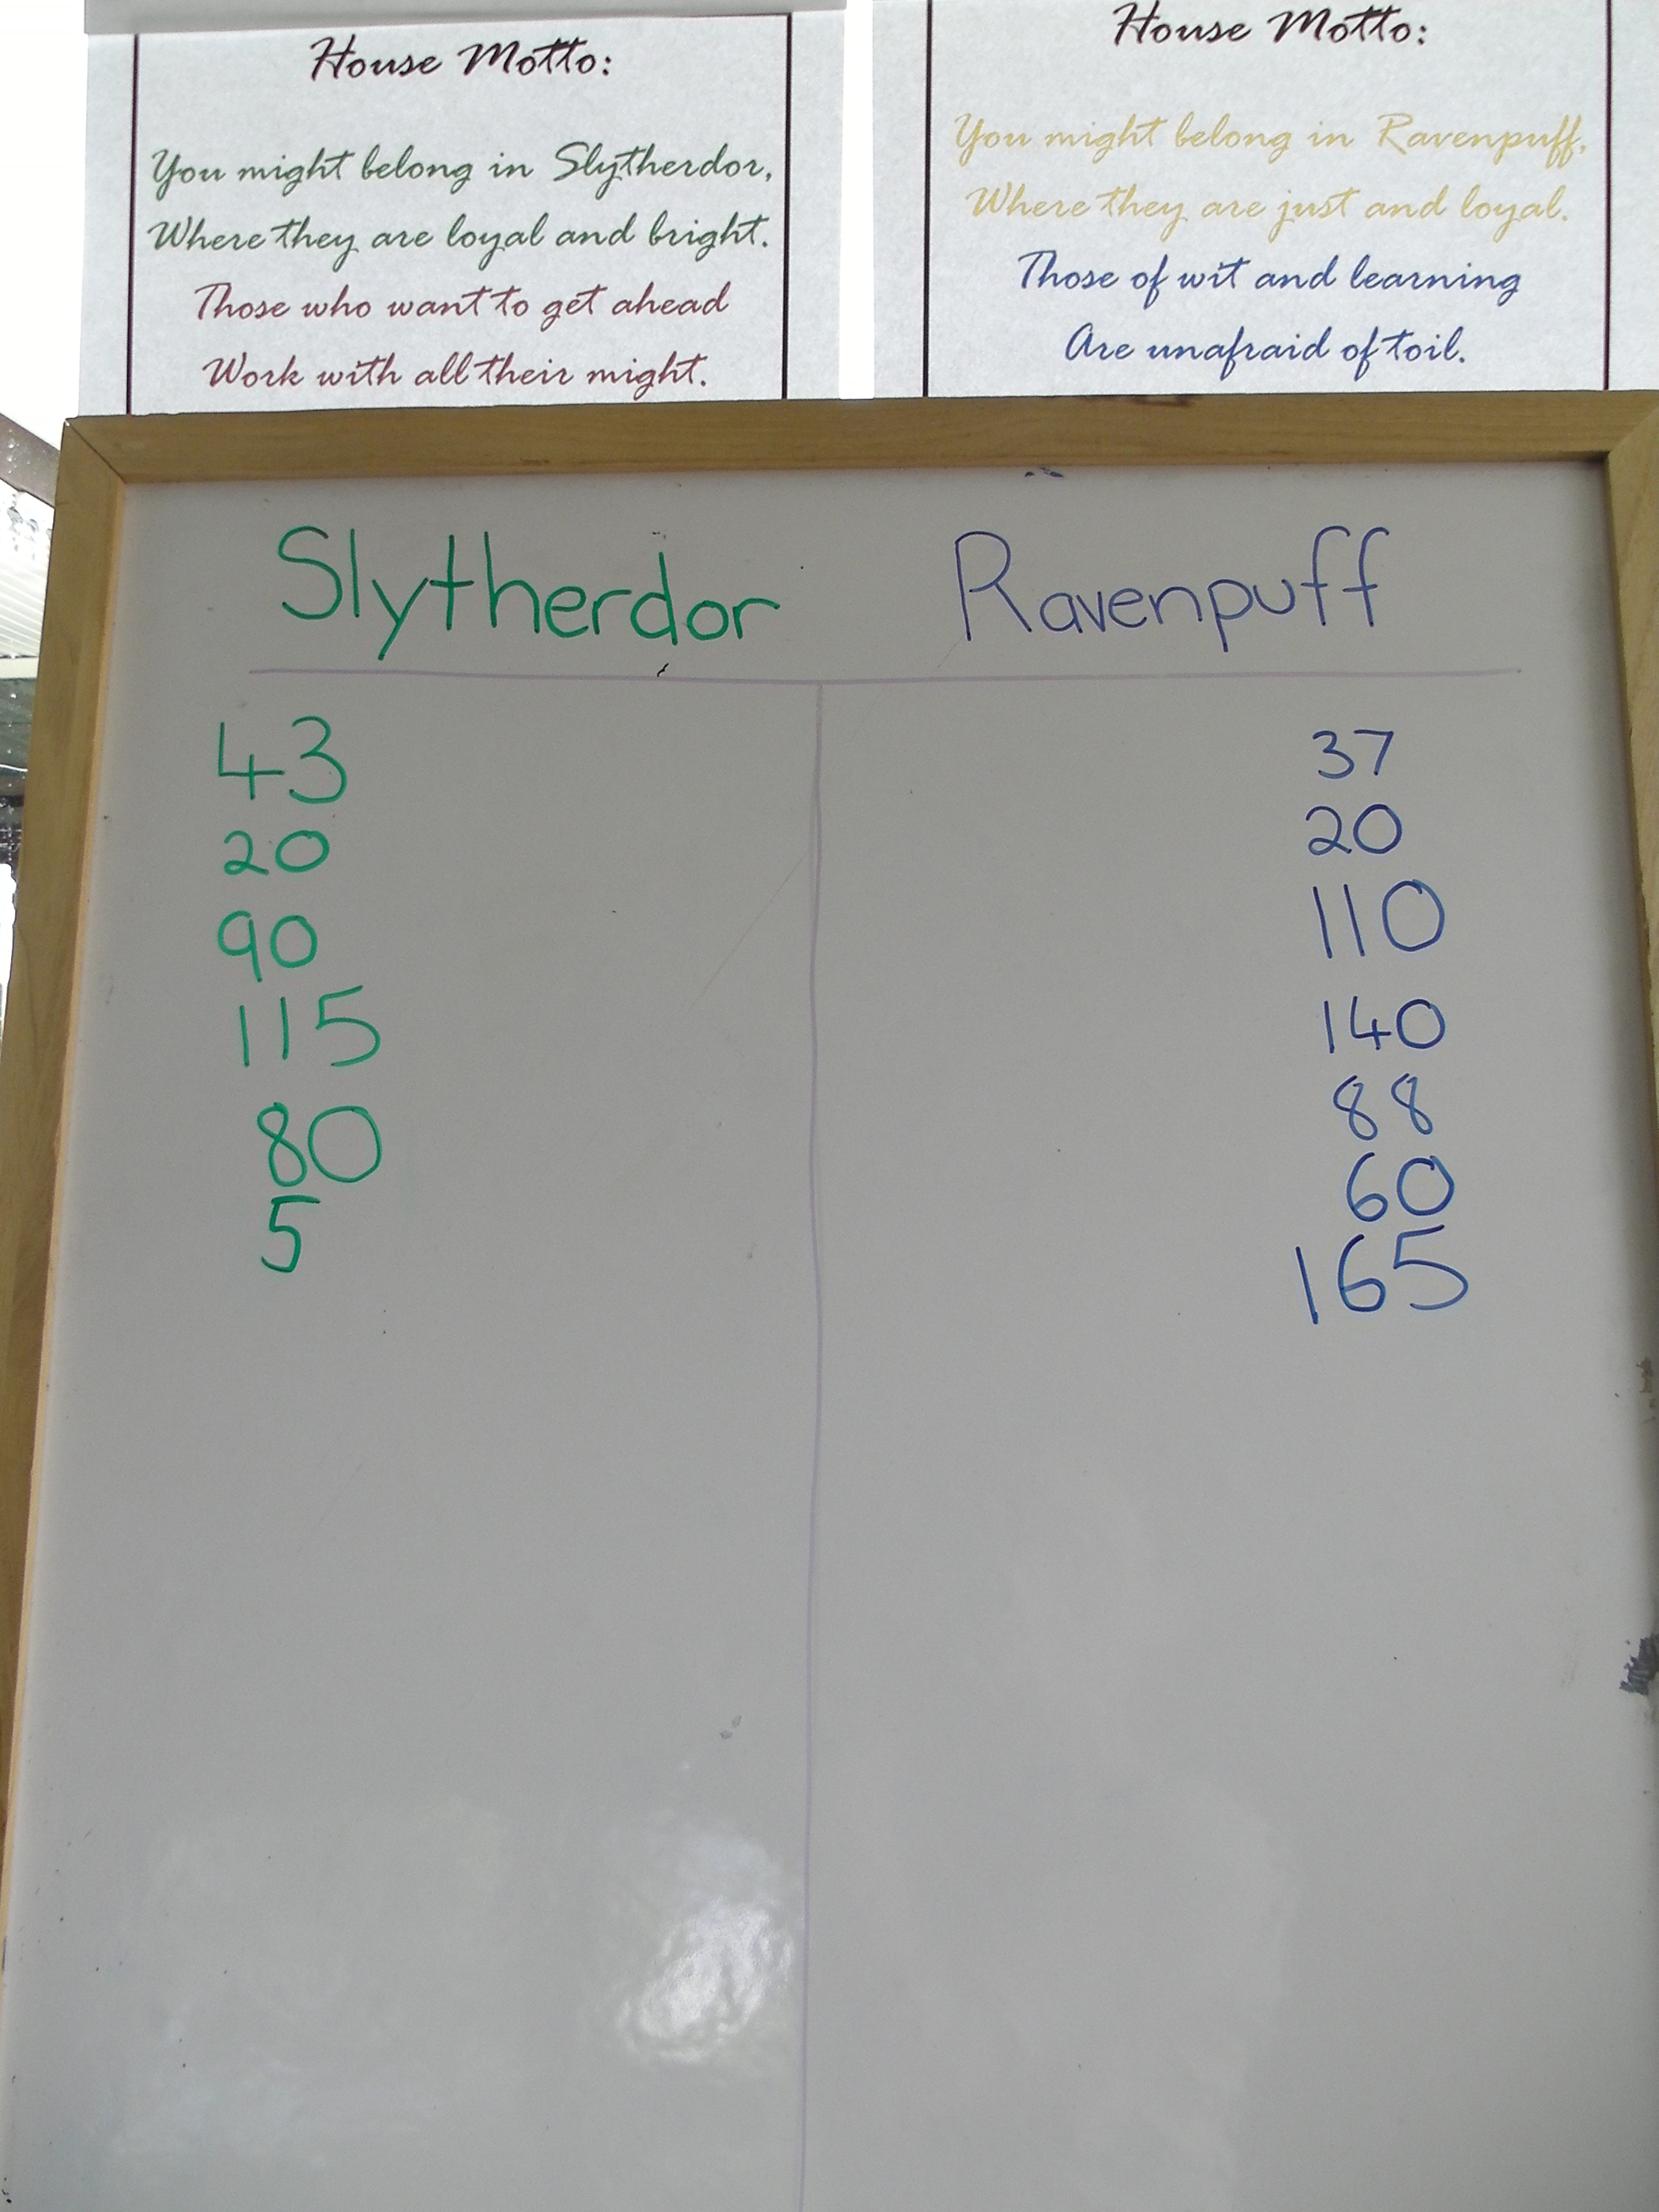 House Motto:
You might belong in Slytherdor,
Where they are loyal and bright.
Those who want to get ahead
Work with all their might.
House Motto:
You might belong in Ravenpuff,
Where they are just and loyal.
Those of wit and learning
Are unafraid of toil.
Slytherdor
43
20
90
115
80
5
Ravenpuff
37
20
110
140
88
60
165